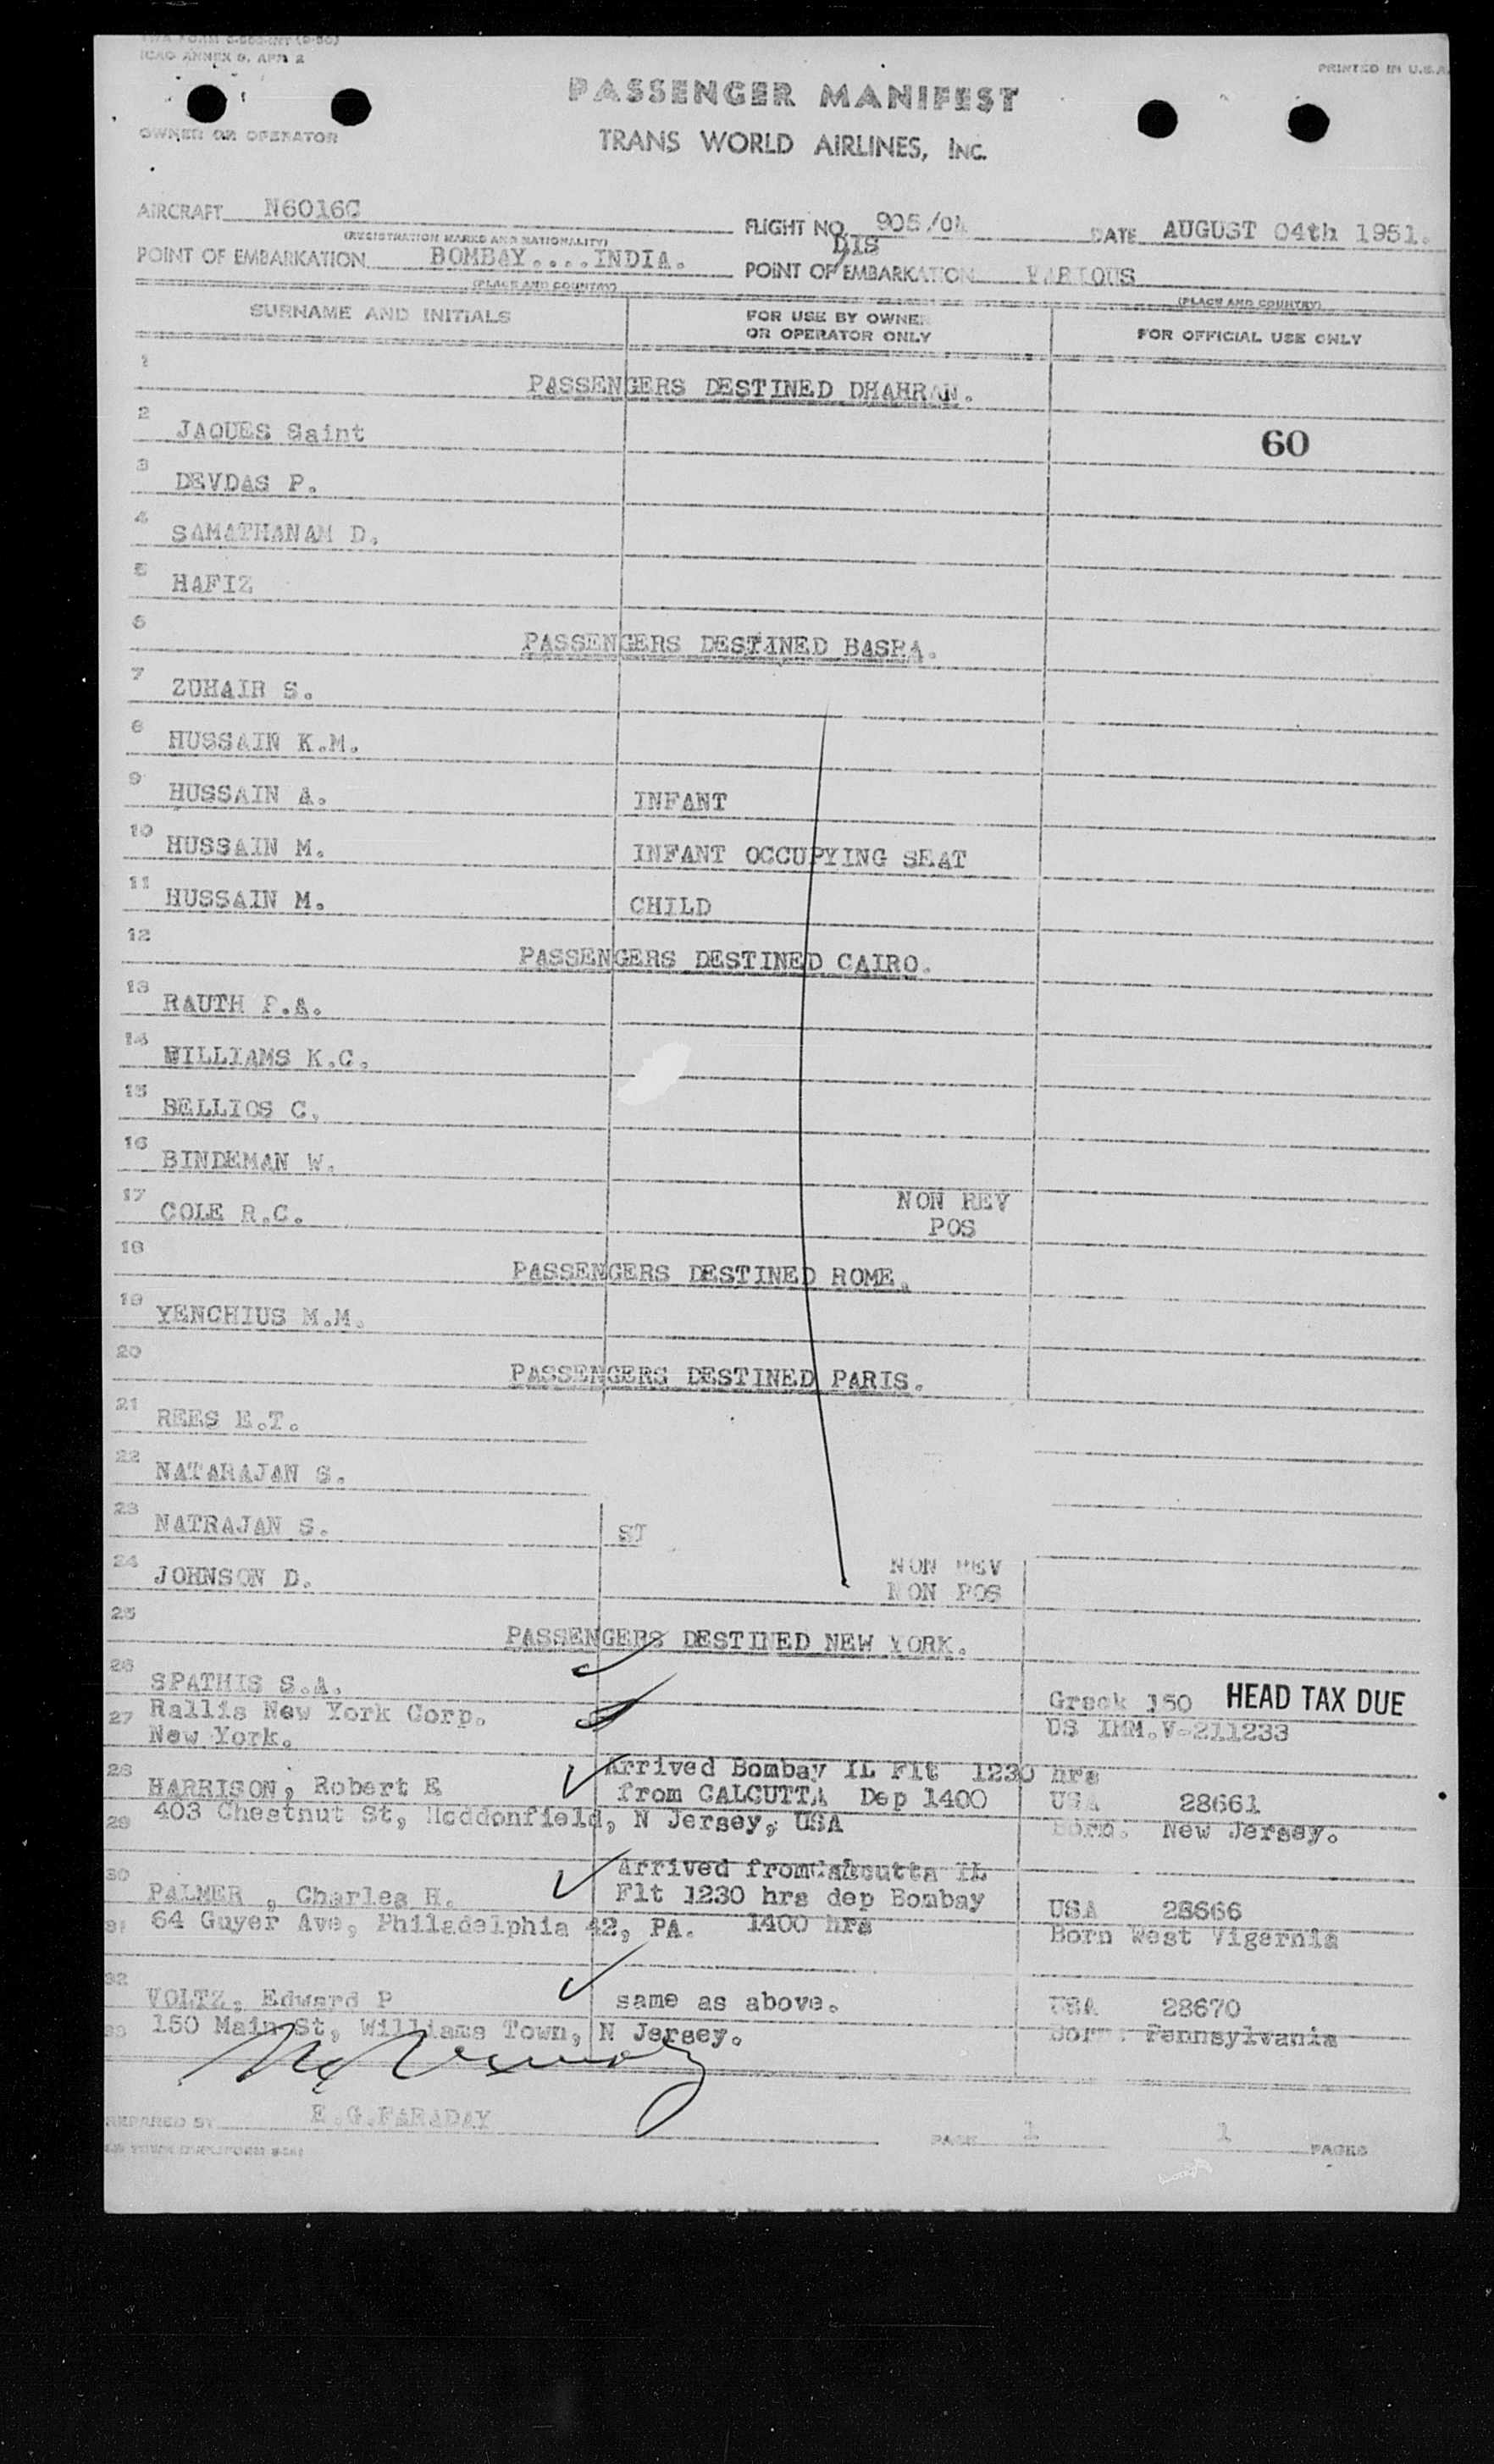 TWA FORM
ICAO ANNEX 9, APP. 2
PRINTED IN U.S.A.
PASSENGER MANIFEST
OWNER OR OPERATOR
TRANS WORLD AIRLINES, INC.
AIRCRAFT N6016C
FLIGHT NO. 905/04
DATE AUGUST 04th 1951.
(REGISTRATION MARKS AND NATIONALITY)
DIS
POINT OF EMBARKATION BOMBAY....INDIA.
POINT OF EMBARKATION VARIOUS
(PLACE AND COUNTRY)
(PLACE AND COUNTRY)
SURNAME AND INITIALS
FOR USE BY OWNER
OR OPERATOR ONLY
FOR OFFICIAL USE ONLY
1
PASSENGERS DESTINED DHAHRAN.
2 JAQUES Saint
60
3 DEVDAS P.
4 SAMATHANAM D.
5 HAFIZ
6
PASSENGERS DESTINED BASRA.
7 ZUHAIR S.
8 HUSSAIN K.M.
9 HUSSAIN A. INFANT
10 HUSSAIN M. INFANT OCCUPYING SEAT
11 HUSSAIN M. CHILD
12
PASSENGERS DESTINED CAIRO.
13 RAUTH P.A.
14 WILLIAMS K.C.
15 BELLIOS C.
16 BINDEMAN W.
17 COLE R.C. NON REV
POS
18
PASSENGERS DESTINED ROME.
19 YENCHIUS M.M.
20
PASSENGERS DESTINED PARIS.
21 REES E.T.
22 NATARAJAN S.
23 NATRAJAN S. ST
24 JOHNSON D. NON REV
NON POS
25
PASSENGERS DESTINED NEW YORK.
26 SPATHIS S.A.
Greek 150 HEAD TAX DUE
27 Rallis New York Corp.
US IMM.V-211233
New York.
Arrived Bombay IL Flt 1230 hrs
28 HARRISON, Robert E from CALCUTTA Dep 1400 USA 28661
29 403 Chestnut St, Hoddonfield, N Jersey, USA Born. New Jersey.
Arrived from Calcutta IL
30 PALMER , Charles H. Flt 1230 hrs dep Bombay USA 28666
31 64 Guyer Ave, Philadelphia 42, PA. 1400 hrs Born West Vigernia
32 VOLTZ, Edward P same as above. USA 28670
33 150 Main St, Williams Town, N Jersey. Born: Pennsylvania
PREPARED BY E.G.FARADAY
PAGE 1 1 PAGES